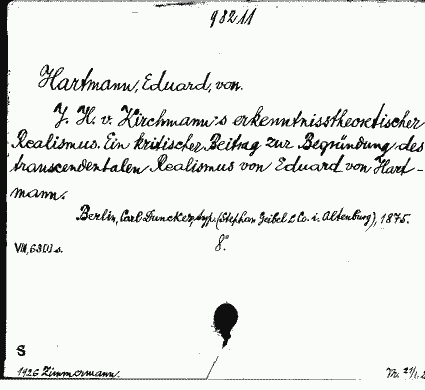 98211
Hartmann, Eduard, von.
J. H. v. Kirchmann's erkenntnisstheoretischer
Realismus. Ein kritischer Beitrag zur Begründung des
transcendentalen Realismus von Eduard von Hart-
mann.
Berlin, Carl Duncker, typ. (Stephan Geibel & Co. i. Altenburg), 1875.
8°
VIII, 63 [1] s.
S
1926 Zimmermann.